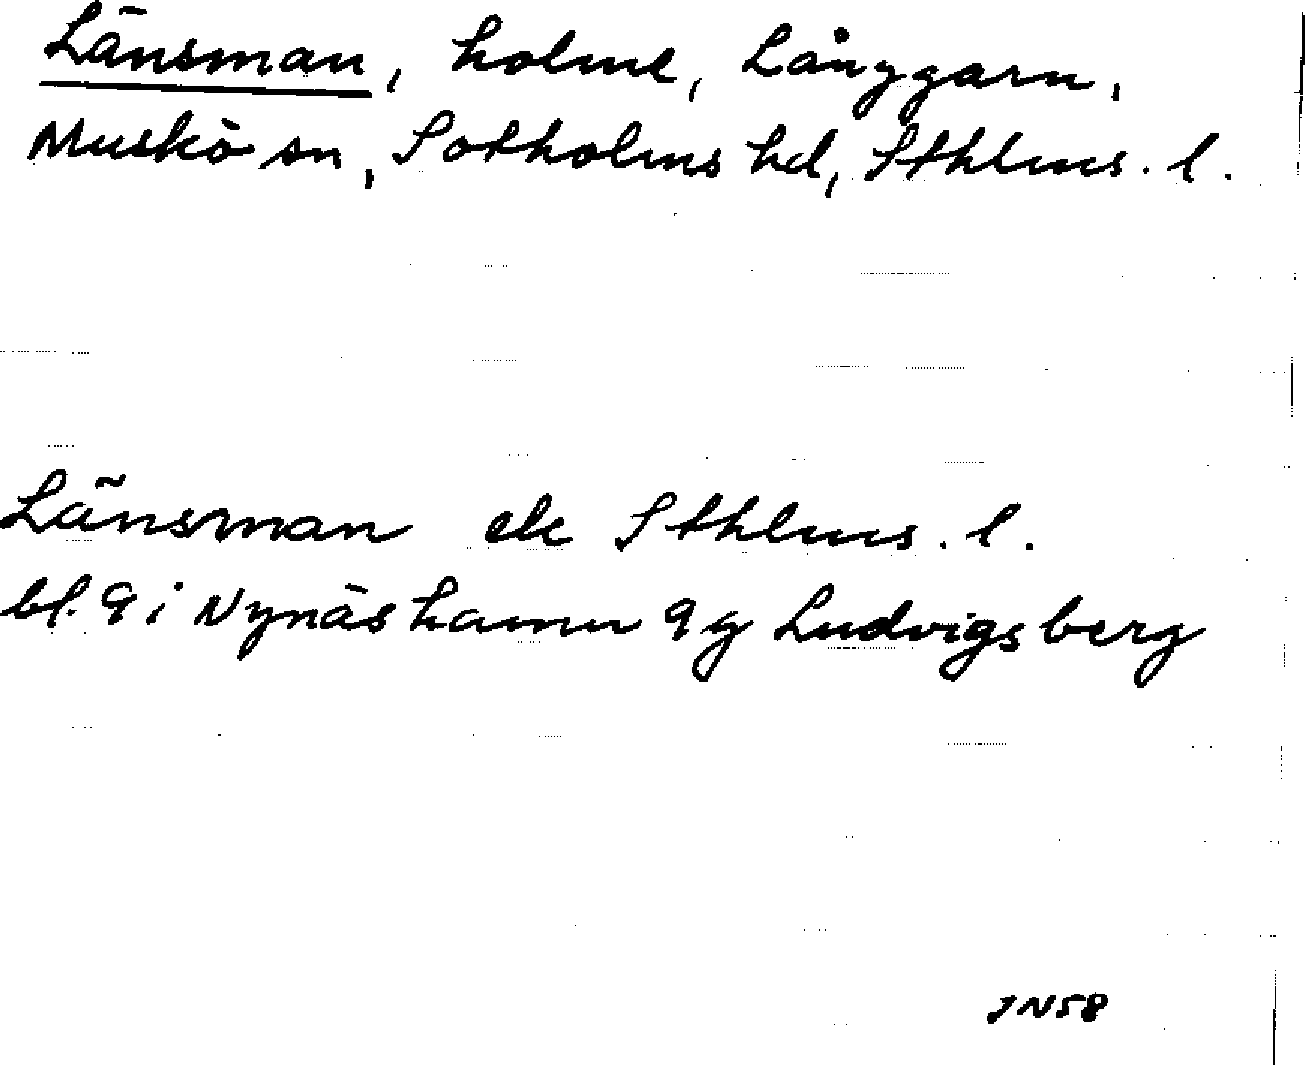 Länsman, holme, Långgarn,
Muskö sn, Sotholms hd, Sthlms. l.
Länsman ek Sthlms. l.
bl. 9 i Nynäshamn 9g Ludvigsberg
JN58